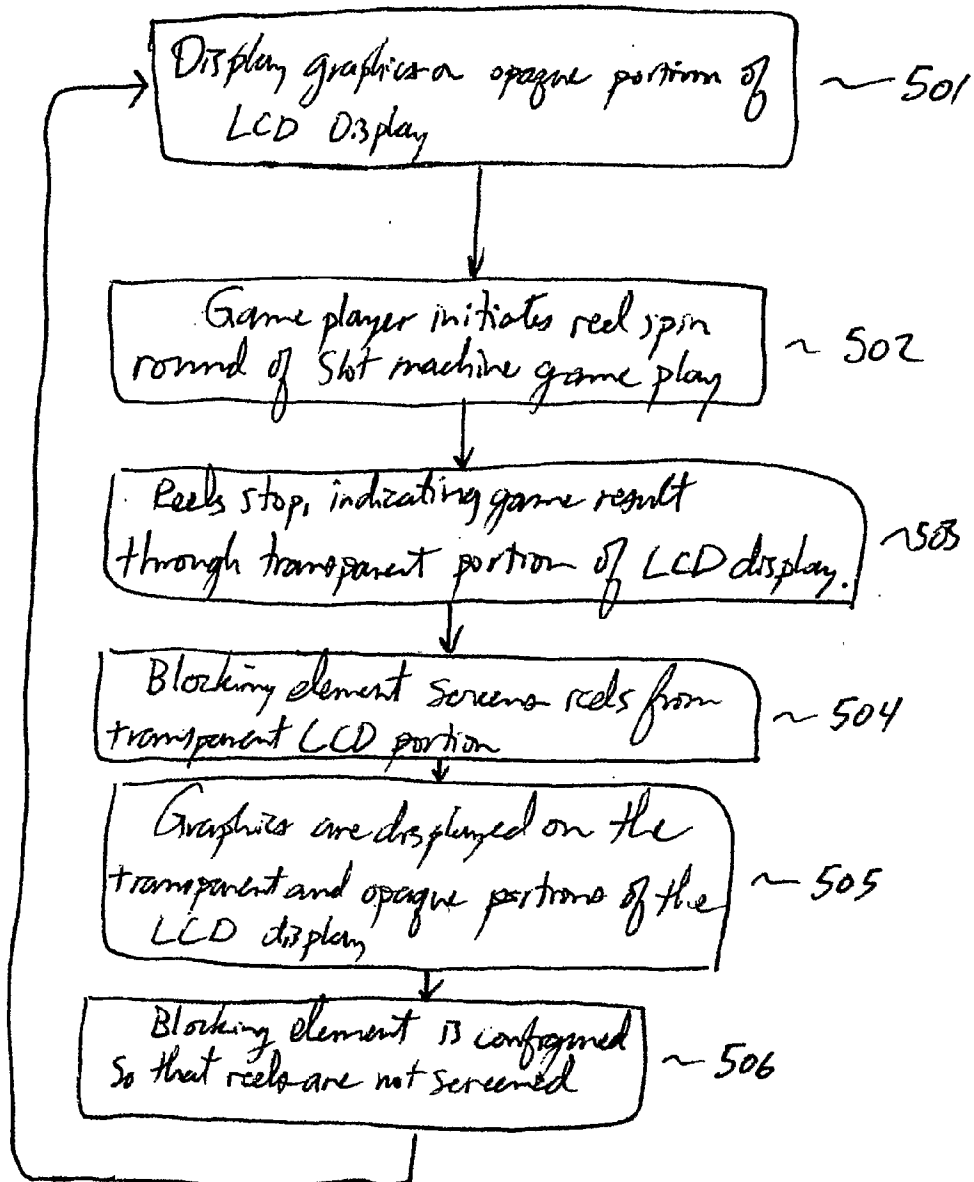 Display graphics on opaque portion of
LCD Display
~ 501
Game player initiates reel spin
round of Slot machine game play
~ 502
Reels stop, indicating game result
through transparent portion of LCD display.
~503
Blocking element screens reels from
transparent LCD portion
~ 504
Graphics are displayed on the
transparent and opaque portions of the
LCD display
~ 505
Blocking element is configured
so that reels are not screened
~ 506